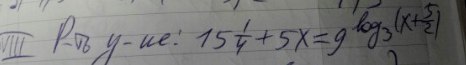 VIII Р-ть у-ие: 15 1/4 + 5x = 9^log₃(x+5/2)